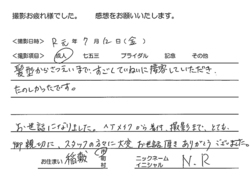 撮影お疲れ様でした。 感想をお願いいたします。
<撮影日時> R元年7月12日(金)
<撮影項目> 成人 七五三 ブライダル 記念 その他
髪型からさつえいまで、すごくていねいに接客していただき、
たのしかったです。
お世話になりました。ヘアメイクから着付、撮影まで、とても
御親切に、スタッフの方々に大変お世話頂きありがとうございました。
お住まい 稲敷 市 町 村 ニックネーム イニシャル N.R